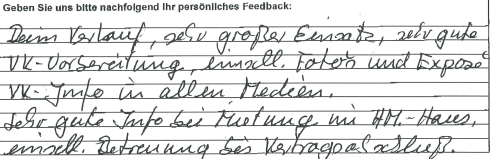 Geben Sie uns bitte nachfolgend Ihr persönliches Feedback:
Beim Verkauf, sehr großer Einsatz, sehr gute
VK-Vorbereitung, einschl. Fotos und Exposé
VK-Info in allen Medien.
Sehr gute Info bei Mietung im HM.-Haus,
einschl. Betreuung bis